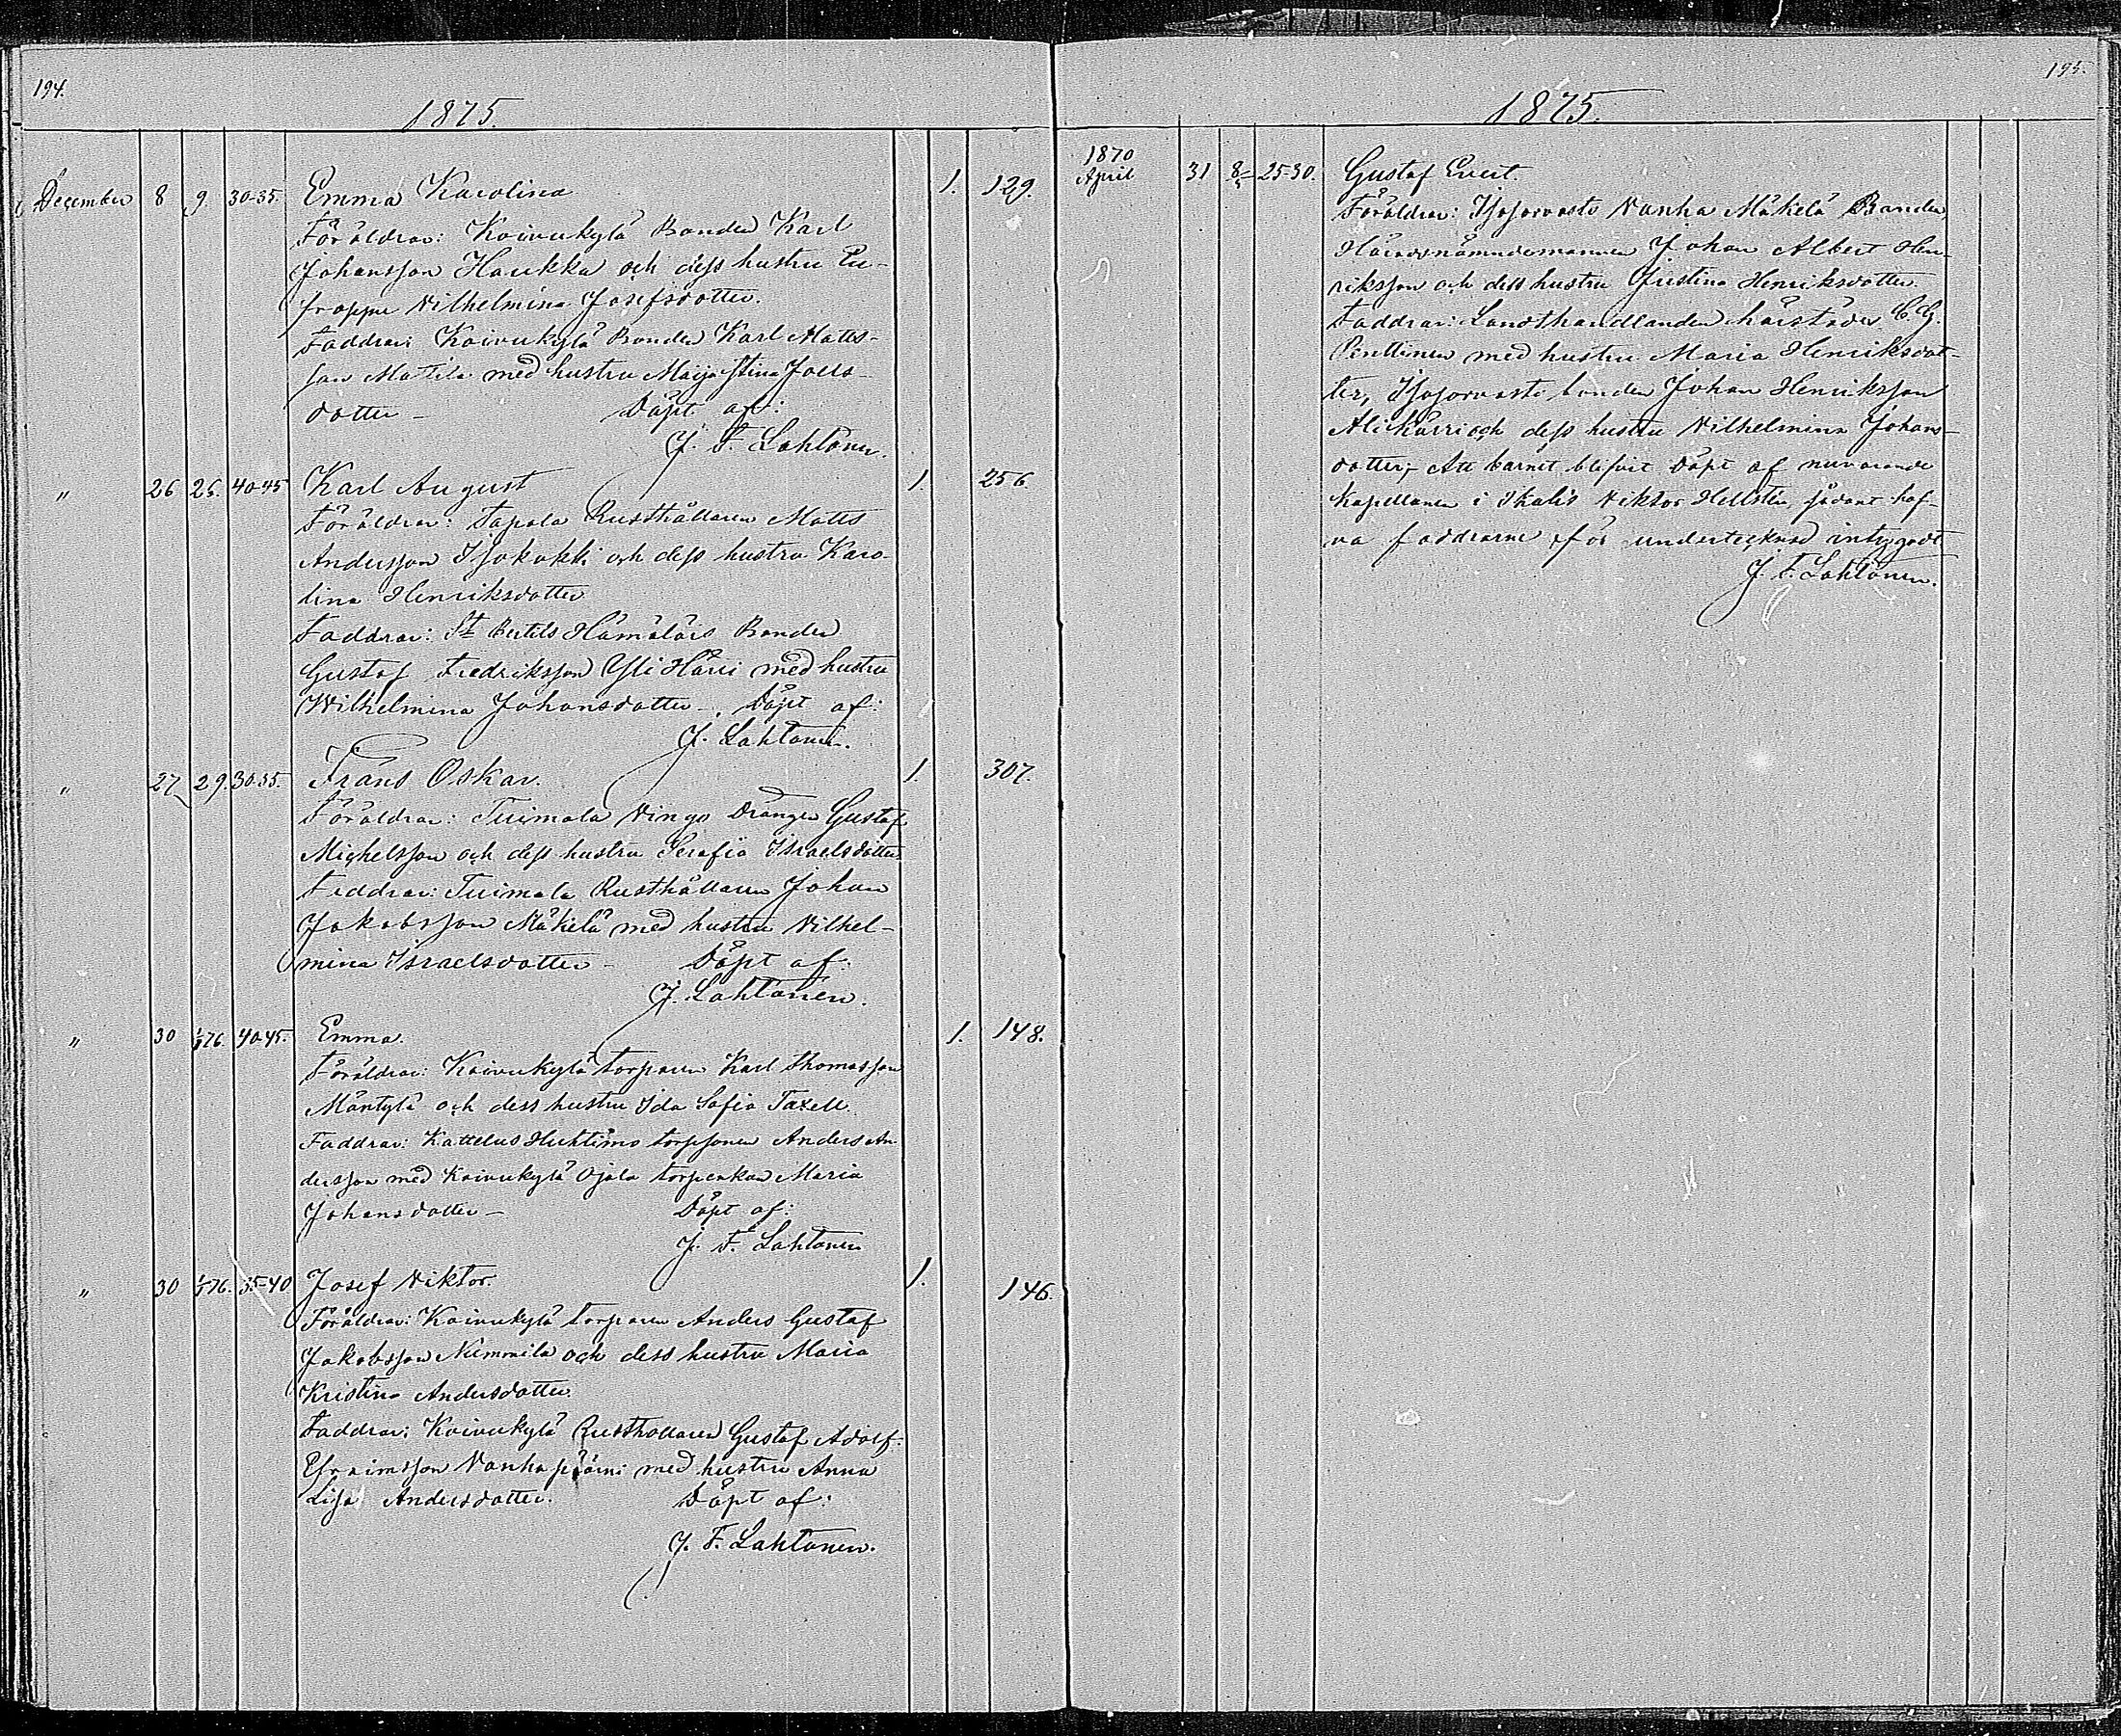 194.
1875.
December 8 9. 30-35. Emma Karolina 1. 129.
Föräldrar: Koivukylä Bonden Karl
Johansson Haukka och dess hustru Eu-
froppne Vilhelmina Josefsdotter.
Faddrar: Koivukylä Bonden Karl Matts-
son Mattila med hustru Maija Stina Joels-
dotter – Döpt af:
J. F. Lahtonen.
" 26 26. 40-45 Karl August 1. 256.
Föräldrar: Tapola Rusthållaren Matts
Andersson Isokokki och dess hustru Karo-
lina Henriksdotter
Faddrar: St Bertils Hämälärs Bonden
Gustaf Fredriksson Yli Härri med hustru
Wilhelmina Johansdotter –. Döpt af:
J. Lahtonen.
" 27 29. 30-35. Frans Oskar. 1. 307.
Föräldrar: Tuimala Vingo Drängen Gustaf
Michelsson och dess hustru Serafia Israelsdotter
Faddrar: Tuimala Rusthållaren Johan
Jakobsson Mäkelä med hustru Vilhel-
mina Israelsdotter – Döpt af:
J. Lahtonen.
" 30 1/1 76. 40-45. Emma. 1. 148.
Föräldrar: Koivukylä torparen Karl Thomasson
Mäntylä och dess hustru Ida Sofia Taxell
Faddrar: Kattelus Huhtimo torpsonen Anders An-
dersson med Koivukylä Ojala torpenkan Maria
Johansdotter – Döpt af:
J. F. Lahtonen
" 30 1/1 76. 35-40 Josef Viktor. 1. 146.
Föräldrar: Koivukylä torparen Anders Gustaf
Jakobsson Nummila och dess hustru Maria
Kristina Andersdotter.
Faddrar: Koivukylä Rusthollaren Gustaf Adolf
Efraimsson Vanhapärni med hustru Anna
Lisa Andersdotter. Döpt af:
J. F. Lahtonen.
195.
1875.
1870
April 31 8/5 25-30. Gustaf Evert.
Föräldrar: Isosorvasto Vanha Mäkelä Bonden
Häradsnämndemannen Johan Albert Hen-
riksson och dess hustru Justina Henriksdotter.
Faddrar: Landthandlanden härstädes C. G.
Penttinen med hustru Maria Henriksdot-
ter, Isosorvasto bonden Johan Henriksson
Alihärri och dess hustru Vilhelmina Johans-
dotter,– Att barnet blifvit döpt af nuvarande
kapellanen i Ikalis Viktor Hellstén, sådant haf-
va faddrarne för undertecknad intygadt
J. F. Lahtonen.